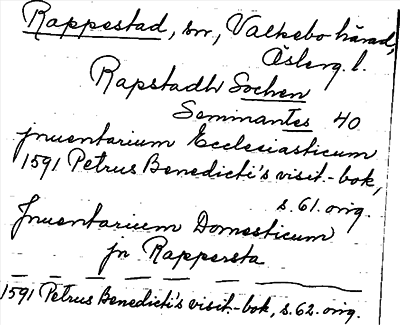 Rappestad, sn, Valkebo härad,
Österg. l.
Rapstadh Sochen
Seminantes 40
Jnuentarium Ecclesiasticum
1591 Petrus Benedicti's visit.-bok,
s. 61. orig.
Jnuentarium Domesticum
jn Rappersta
1591 Petrus Benedicti's visit.-bok, s. 62. orig.